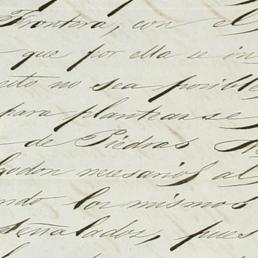 Frontera, con el
que por ella se in
esto no sea posible
para plantearse
de Piedras
godon necesario al
ndo los mismos
señalados, pues